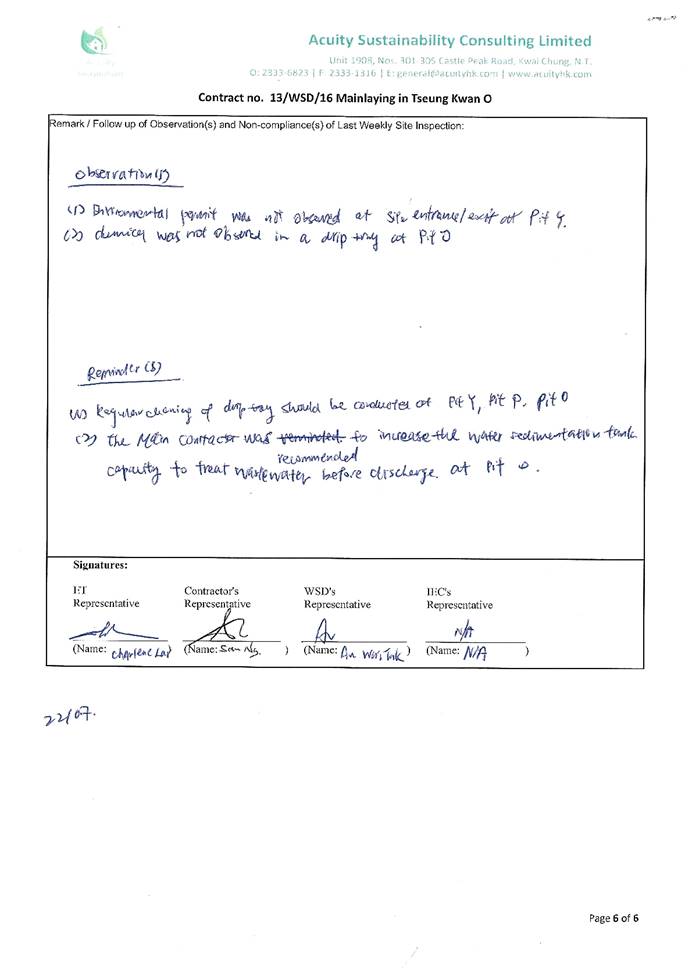 Acuity Sustainability Consulting Limited
Unit 1908, Nos. 301-305 Castle Peak Road, Kwai Chung, N.T.
O: 2333-6823 | F: 2333-1316 | E: general@acuityhk.com | www.acuityhk.com
Contract no. 13/WSD/16 Mainlaying in Tseung Kwan O
Remark / Follow up of Observation(s) and Non-compliance(s) of Last Weekly Site Inspection:
Observation(s)
(1) Environmental permit was not observed at site entrance/exit at Pit Y.
(2) chemical was not observed in a drip tray at Pit O
Reminder(s)
(1) Regular cleaning of drip tray should be conducted at Pit Y, Pit P, Pit O
(2) the Main Contractor was reminded to increase the water sedimentation tank
recommended
capacity to treat wastewater before discharge at Pit O.
Signatures:
ET Representative
Contractor's Representative
WSD's Representative
IEC's Representative
N/A
(Name: Charlene Lai
(Name: San Ng. )
(Name: )
(Name: N/A )
22/07.
Page 6 of 6